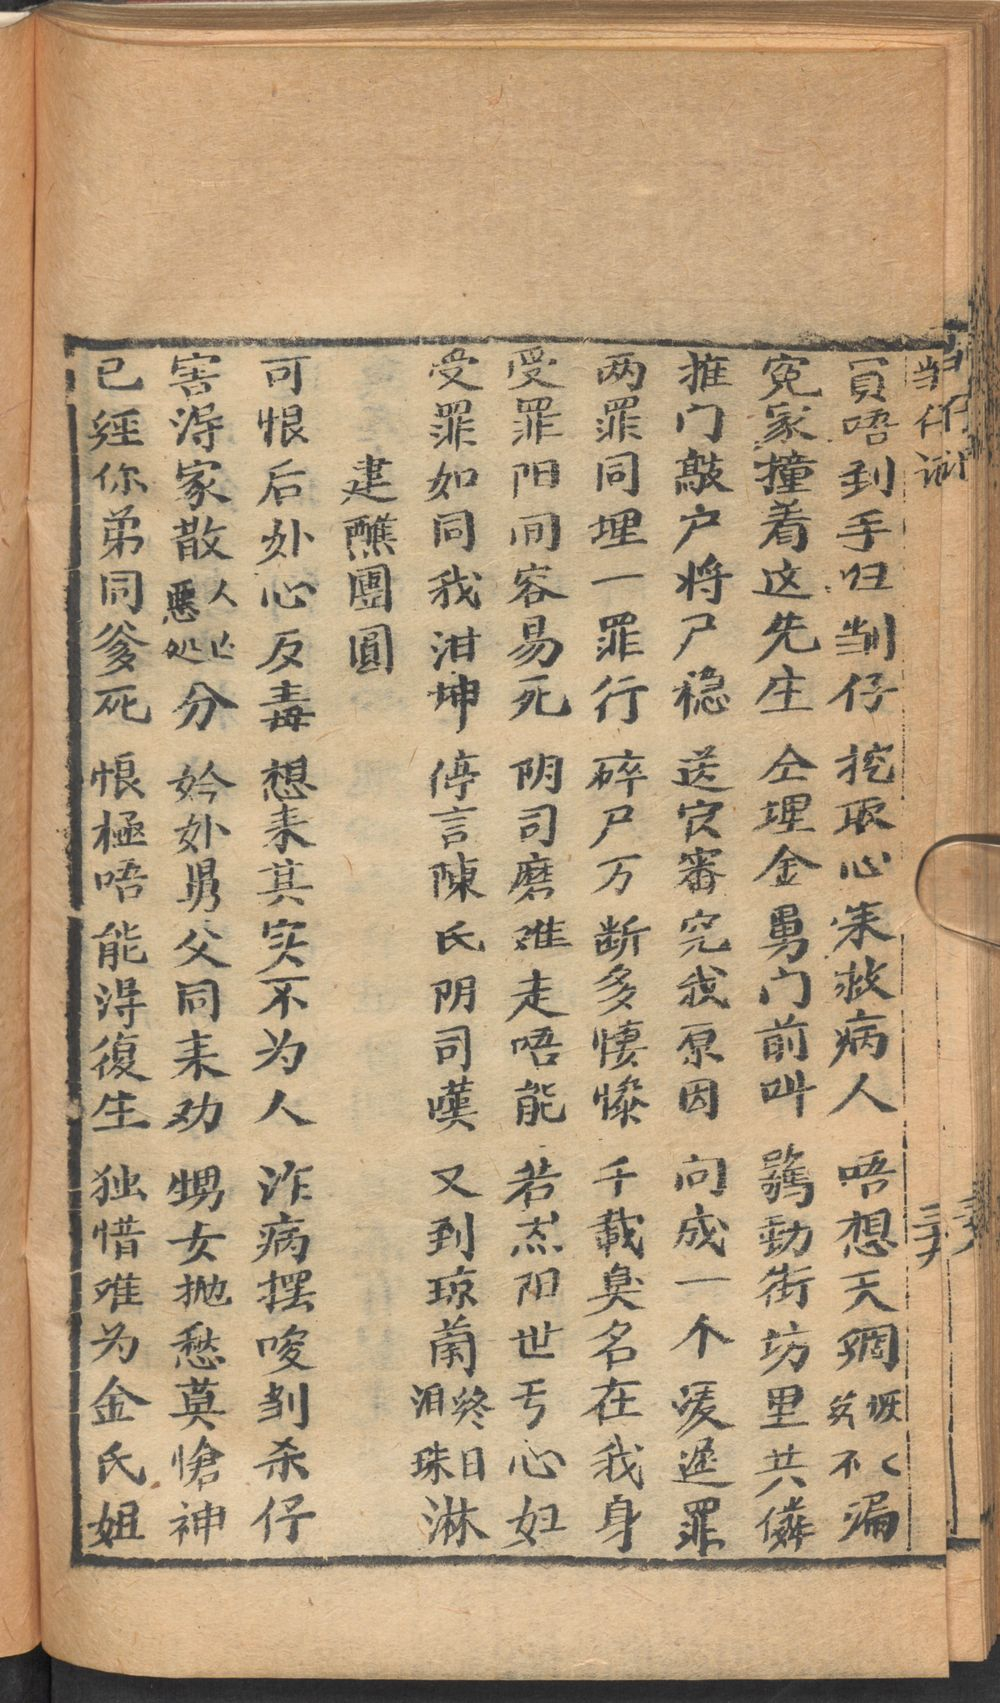 買唔到手归㓥仔　挖取心来救病人　唔想天網恢〻疏不漏
冤家撞着这先生　仝埋金勇门前叫　驚動街坊里共僯
推门敲户将尸稳　送官審究我原因　问成一个凌遲罪
两罪同埋一罪行　碎尸万断多悽慘　千載臭名在我身
受罪阳间容易死　阴司磨难走唔能　若然阳世亏心妇
受罪如同我泔坤　停言陳氏阴司嘆　又到琼蘭終日泪珠淋
建醮團圓
可恨后外心反毒　想来其实不为人　诈病摆唆㓥杀仔
害得家散人亡惡処分　妗外舅父同来劝　甥女抛愁莫愴神
已經你弟同爹死　恨極唔能得復生　独惜难为金氏姐